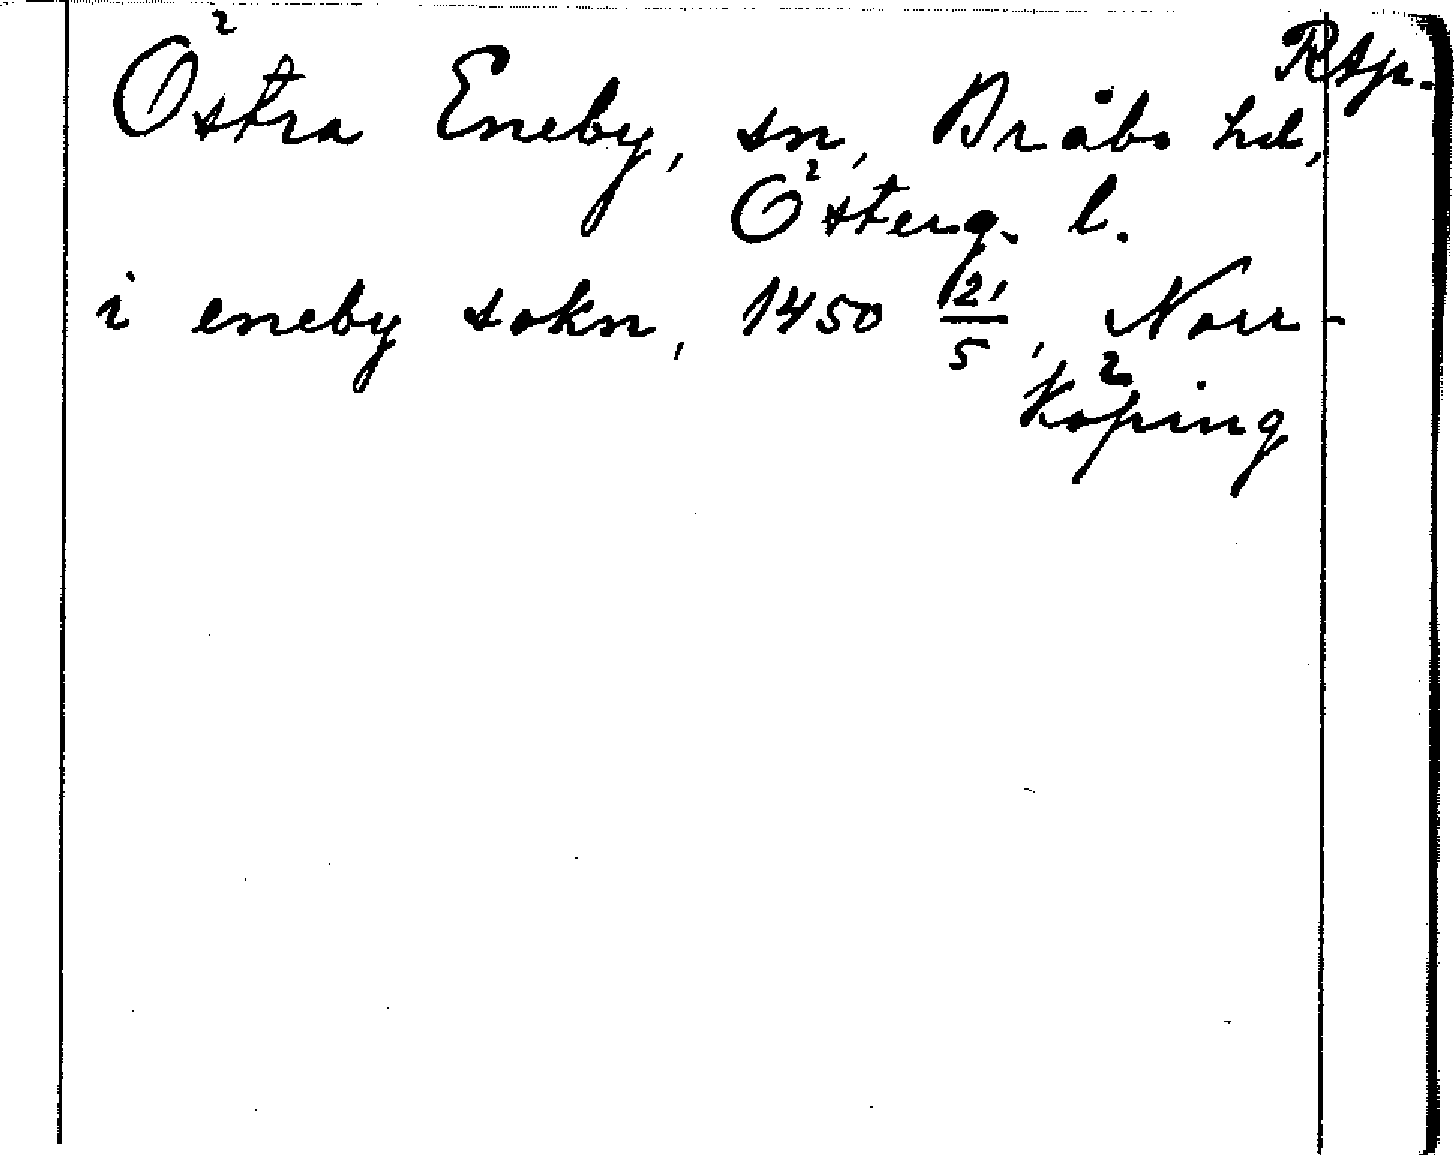 RAp.
Östra Eneby, sn, Bråbo hd,
Österg. l.
i eneby sokn, 1450 21/5, Norr-
köping